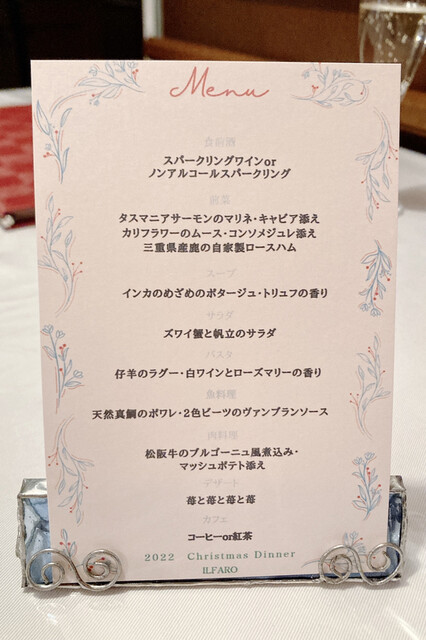 Menu
食前酒
スパークリングワインor
ノンアルコールスパークリング
前菜
タスマニアサーモンのマリネ・キャビア添え
カリフラワーのムース・コンソメジュレ添え
三重県産鹿の自家製ロースハム
スープ
インカのめざめのポタージュ・トリュフの香り
サラダ
ズワイ蟹と帆立のサラダ
パスタ
仔羊のラグー・白ワインとローズマリーの香り
魚料理
天然真鯛のポワレ・2色ビーツのヴァンブランソース
肉料理
松阪牛のブルゴーニュ風煮込み・
マッシュポテト添え
デザート
苺と苺と苺と苺
カフェ
コーヒーor紅茶
2022 Christmas Dinner
ILFARO